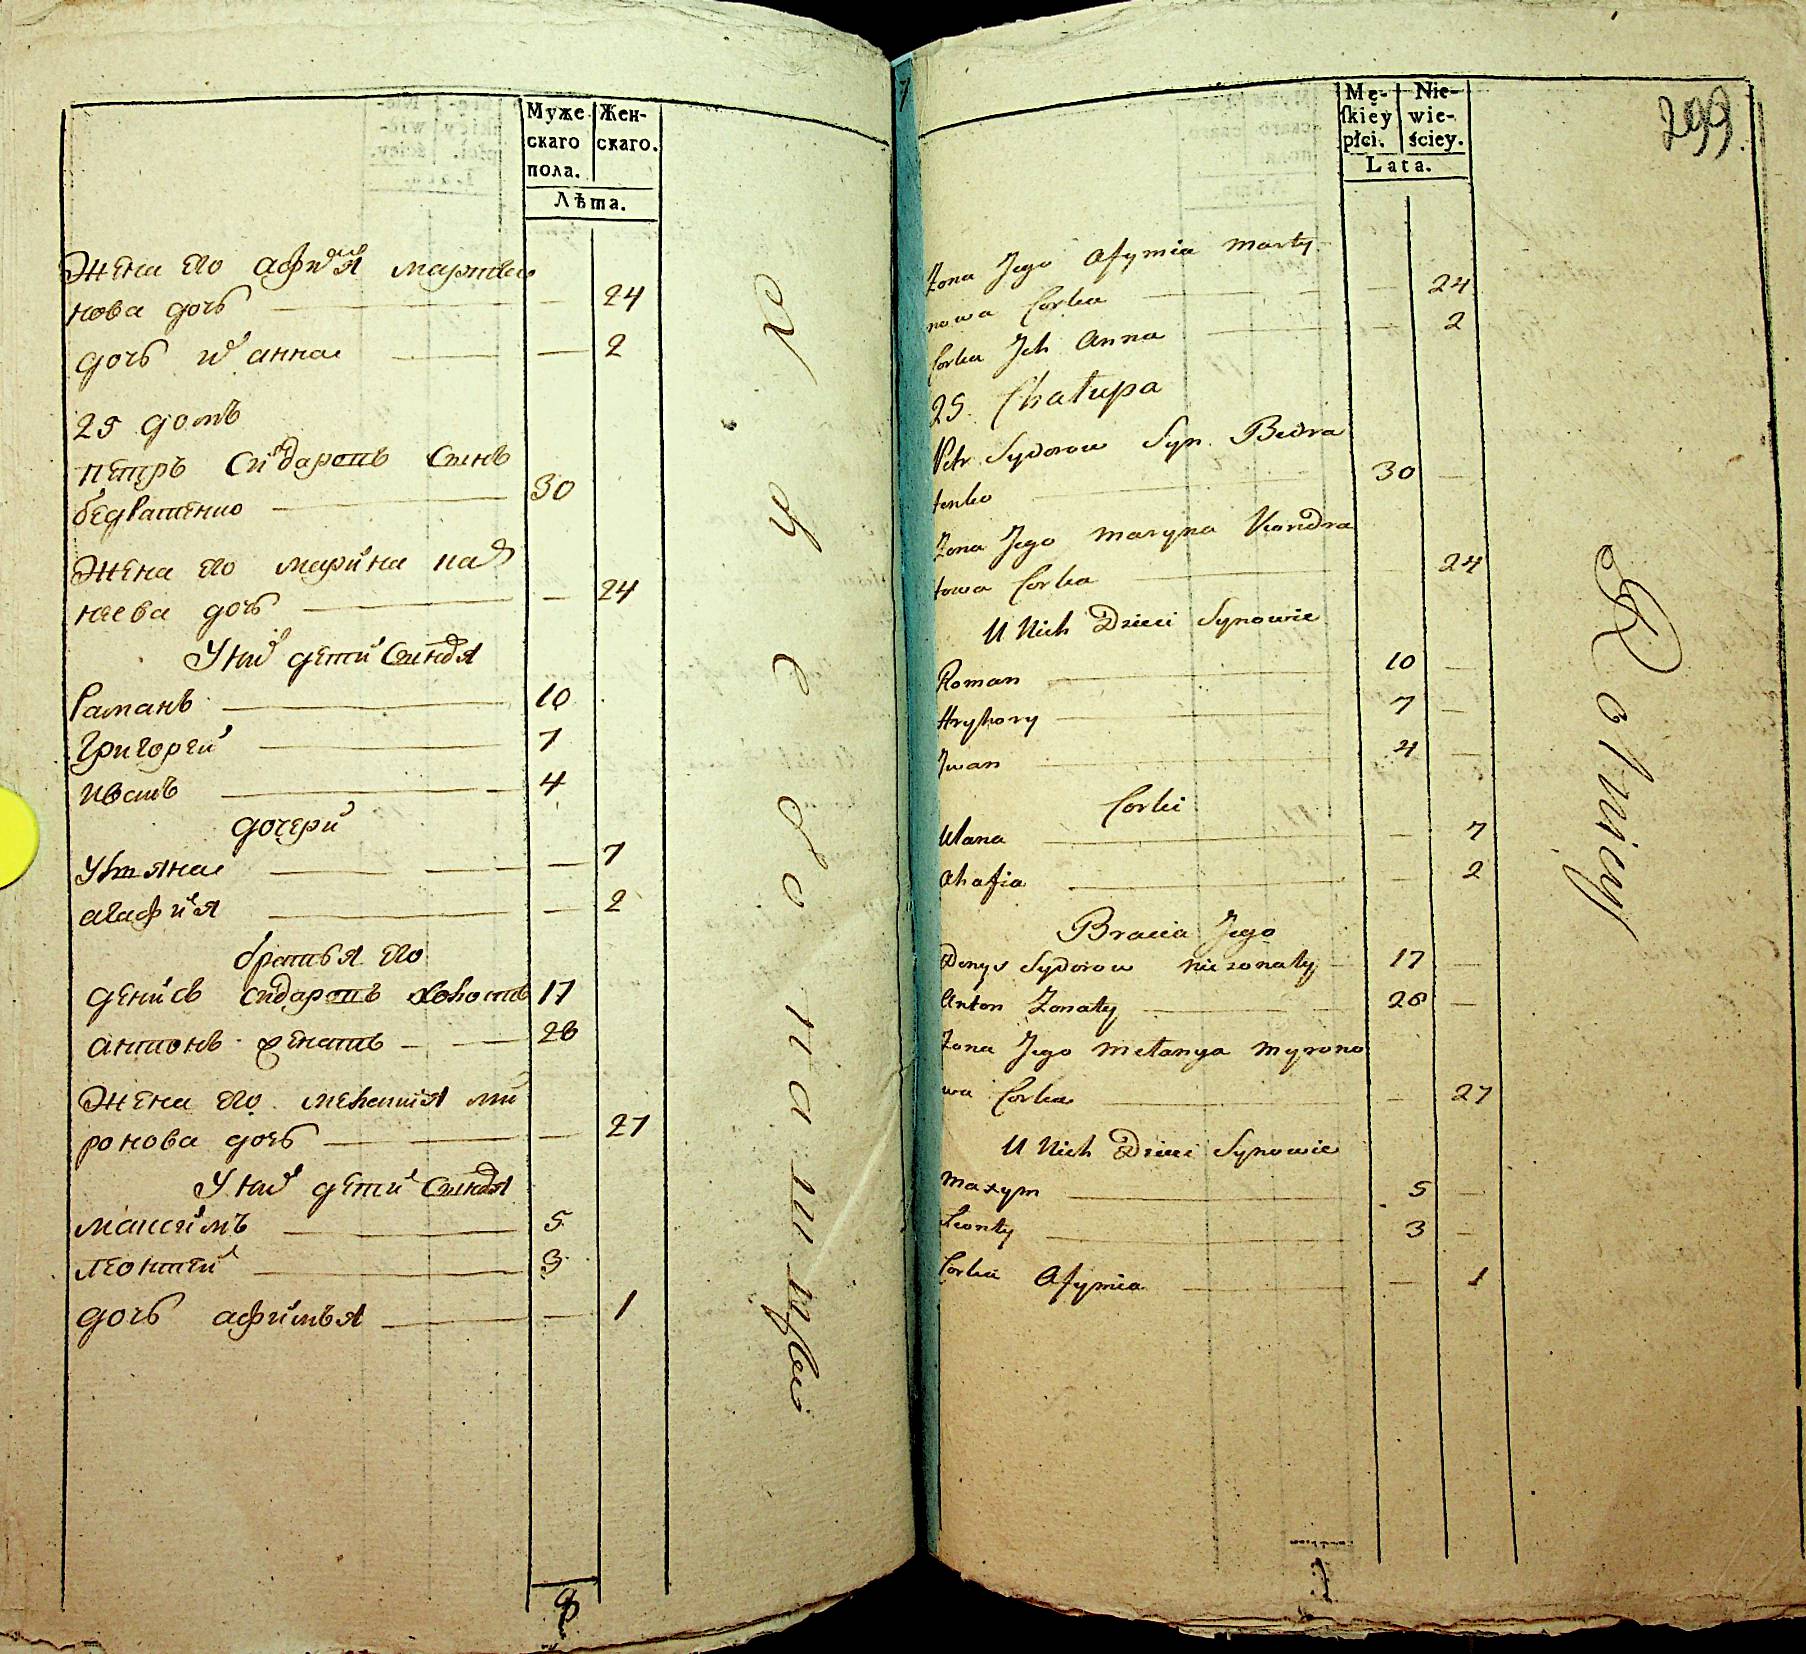 Муже Жен-
скаго скаго.
пола.
Лѣта.
Жена его афимя марты
нова дочь — — 24
дочь их анна — — 2
25 домъ
петръ сидаровъ сынъ
бедратенко — 30
Жена его марина кад
ева дочь — — 24
У них дети сынов
Раманъ — 10
Григорей — 7
иванъ — 4
дочери
Уляна — — 7
агафия — — 2
братья его
денисъ сидаровъ холостъ 17
антонъ женатъ — 26
Жена его мелания ми
ронова дочь — — 27
У них дети сынов
максимъ — 5
леонтей — 3
дочь афимья — — 1
299.
Mę- Nie-
ſkiey wie-
płci. ściey.
Lata.
Zona Jego Afymia Marty-
nowa Corka — — 24
Corka Jch Anna — — 2
25. Chałupa
Petr Sydorow Syn Bedra
tenko — 30 —
Zona Jego Maryna Kondra
towa Corka — — 24
U Nich Dzieci Synowie
Roman — 10 —
Hryhory — 7 —
Jwan — 4 —
Corki
Ulana — — 7
Ahafia — — 2
Bracia Jego
Denys Sydorow nie zonaty — 17 —
Anton Zonaty — 26 —
Zona Jego Melanya Myrono
wa Corka — — 27
U Nich Dzieci Synowie
Maxym — 5 —
Leonty — 3 —
Corka Afymia — — 1
Rolnicy